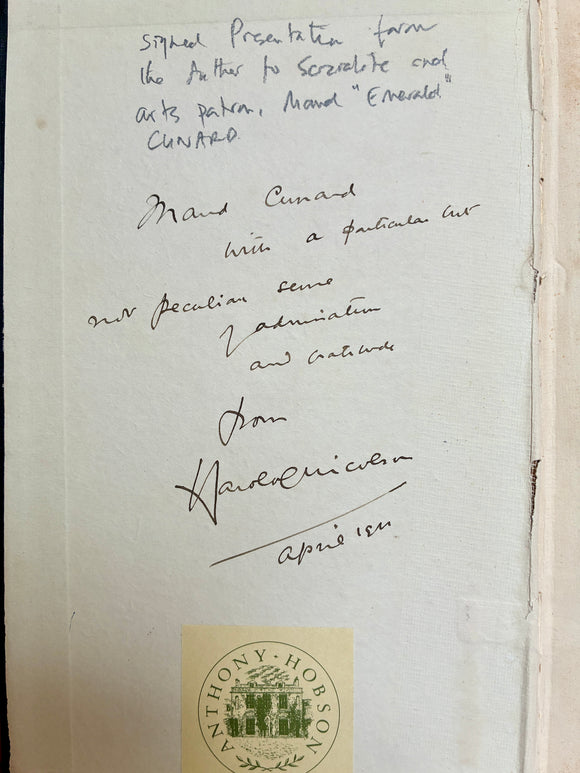 Signed Presentation from
the Author to Socialite and
arts patron, Maud "Emerald"
CUNARD
Maud Cunard
with a particular but
not peculiar sense
of admiration
and gratitude
from
Harold Nicolson
April
ANTHONY · HOBSON